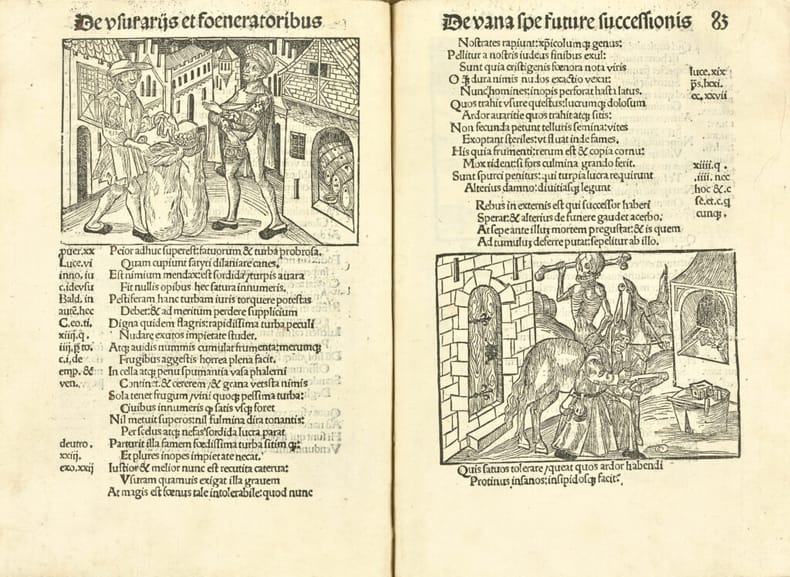 De vsurarijs et foeneratoribus
puer.xx Peior adhuc superest: fatuorum & turba probrosa.
Luce.vi Quam cupiunt satyri dilaniare canes.
inno. iu Est nimium mendax: est sordida/turpis auara
c.idevsu Fit nullis opibus hec satura innumeris.
Bald. in Pestiferam hanc turbam iuris torquere potestas
autē.hec Debet: & ad meritum perdere supplicium
C.eo.ti. Digna quidem flagris: rapidissima turba peculi
xiiij.q. Nudare exutos impietate studet.
iiij.ꝑ to. Atqꝫ auidis nummis cumulat frumenta: merumqꝫ
c.i,de Frugibus aggestis horrea plena facit.
emp. & In cella atqꝫ penu spumantia vasa phalerni
ven. Continet: & cererem/& grana vetusta nimis
Sola tenet frugem/vini quoqꝫ pessima turba:
Ciuibus innumeris qꝫ satis vsqꝫ foret
Nil metuit superos: nil fulmina dira tonantis:
Per scelus atqꝫ nefas sordida lucra parat
deutro. Parturit illa famem foedissima turba sitimqꝫ:
xxiij. Et plures inopes impietate necat.
exo.xxij Iustior & melior nunc est recutita caterua:
Vsuram quamuis exigat illa grauem
At magis est foenus tale intolerabile: quod nunc
De vana spe future successionis 83
Nostrates rapiunt: xp̄icolumqꝫ genus:
Pellitur a nostris iudeus finibus exul:
Sunt quia cristigenis foenora nota viris
O qꝫ dura nimis nudos exactio vexat: luce.xix
Nunc homines: inopis perforat hasta latus. p̄s.lxxi.
Quos trahit vsure questus: lucrumqꝫ dolosum ec.xxvii
Ardor auaritie quos trahit atqꝫ sitis:
Non secunda petunt telluris semina: vites
Exoptant steriles: vt fluat inde fames.
His quia frumenti: rerum est & copia cornu:
Mox rident: si fors culmina grando ferit. xiiii.q.
Sunt spurci penitus: qui turpia lucra requirunt .iiii. nec
Alterius damno: diuitiasqꝫ legunt hoc &.c
Rebus in externis est qui successor haberi se.et.c.q
Sperat: & alterius de funere gaudet acerbo. cunqꝫ.
At sepe ante illius mortem pregustat: & is quem
Ad tumulum deferre putat: sepelitur ab illo.
Quis fatuos tolerare/queat quos ardor habendi
Protinus insanos: insipidosqꝫ facit?